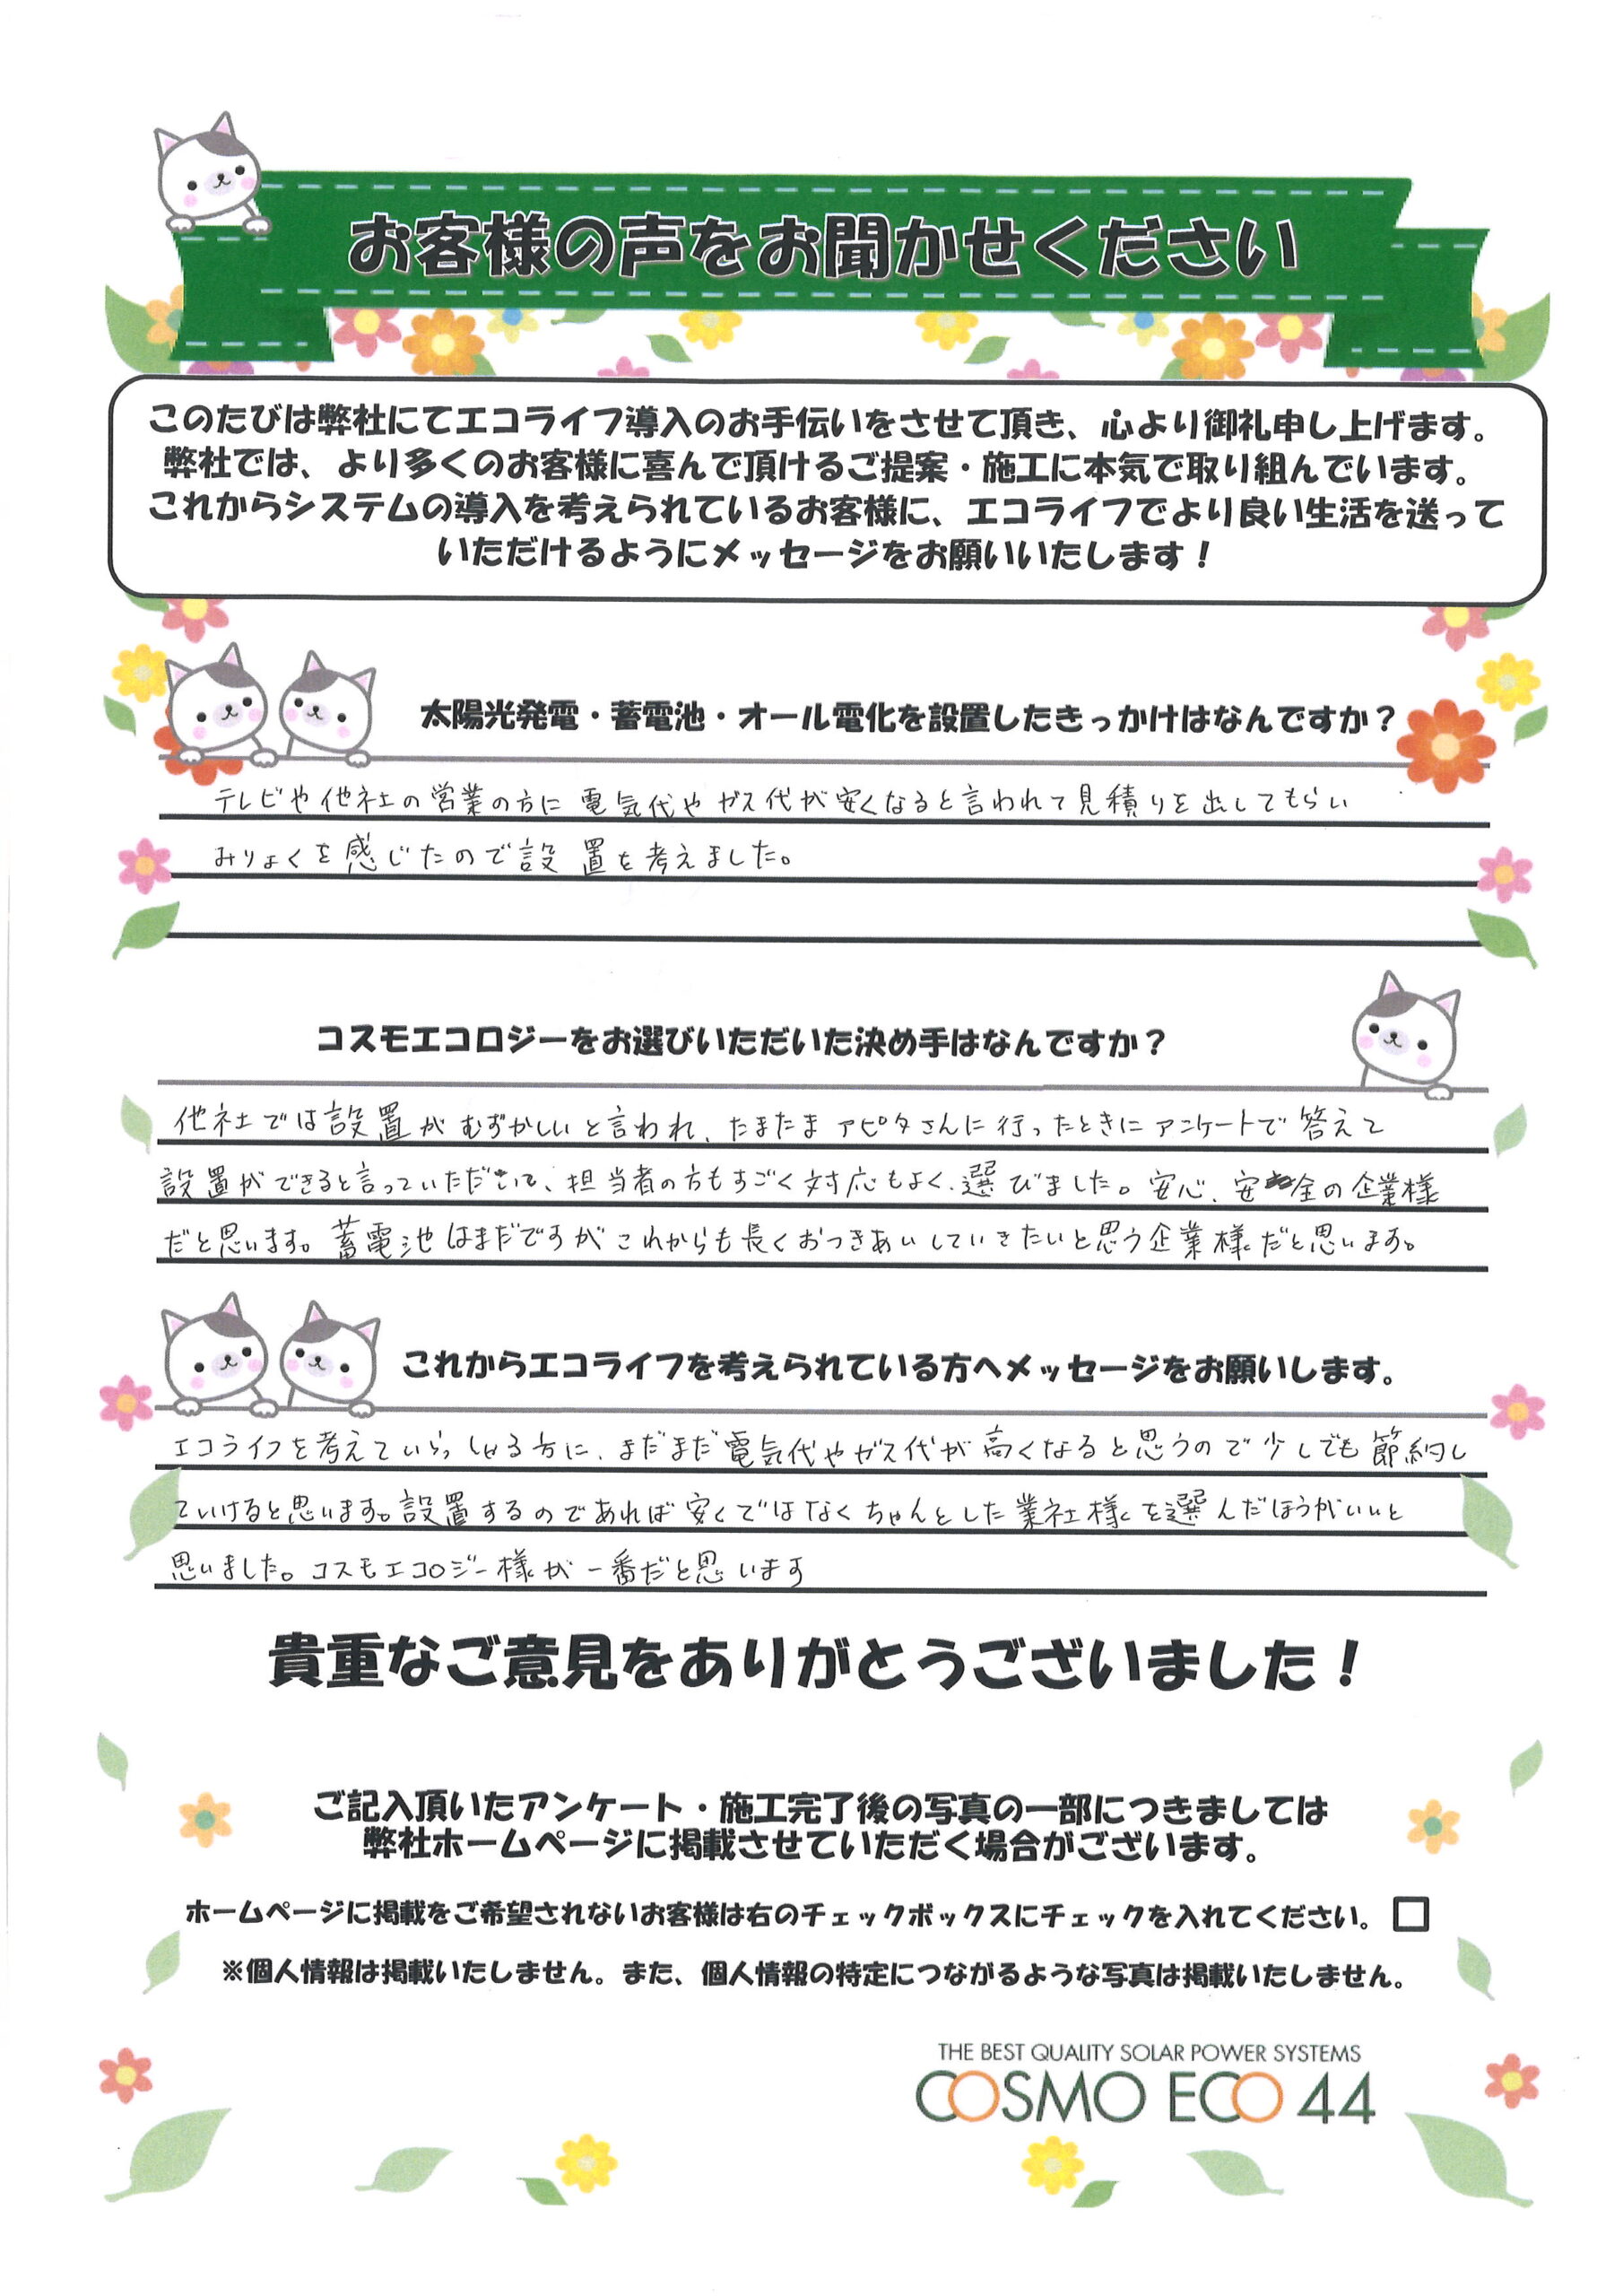 お客様の声をお聞かせください
このたびは弊社にてエコライフ導入のお手伝いをさせて頂き、心より御礼申し上げます。
弊社では、より多くのお客様に喜んで頂けるご提案・施工に本気で取り組んでいます。
これからシステムの導入を考えられているお客様に、エコライフでより良い生活を送って
いただけるようにメッセージをお願いいたします！
太陽光発電・蓄電池・オール電化を設置したきっかけはなんですか？
テレビや他社の営業の方に電気代やガス代が安くなると言われて見積りを出してもらい
みりょくを感じたので設置を考えました。
コスモエコロジーをお選びいただいた決め手はなんですか？
他社では設置がむずかしいと言われ、たまたまアピタさんに行ったときにアンケートで答えて
設置ができると言っていただいて、担当者の方もすごく対応もよく、選びました。安心、安全の企業様
だと思います。蓄電池はまだですがこれからも長くおつきあいしていきたいと思う企業様だと思います。
これからエコライフを考えられている方へメッセージをお願いします。
エコライフを考えていらっしゃる方に、まだまだ電気代やガス代が高くなると思うので少しでも節約し
ていけると思います。設置するのであれば安くではなくちゃんとした業社様を選んだほうがいいと
思いました。コスモエコロジー様が一番だと思います
貴重なご意見をありがとうございました！
ご記入頂いたアンケート・施工完了後の写真の一部につきましては
弊社ホームページに掲載させていただく場合がございます。
ホームページに掲載をご希望されないお客様は右のチェックボックスにチェックを入れてください。
※個人情報は掲載いたしません。また、個人情報の特定につながるような写真は掲載いたしません。
THE BEST QUALITY SOLAR POWER SYSTEMS
COSMO ECO 44